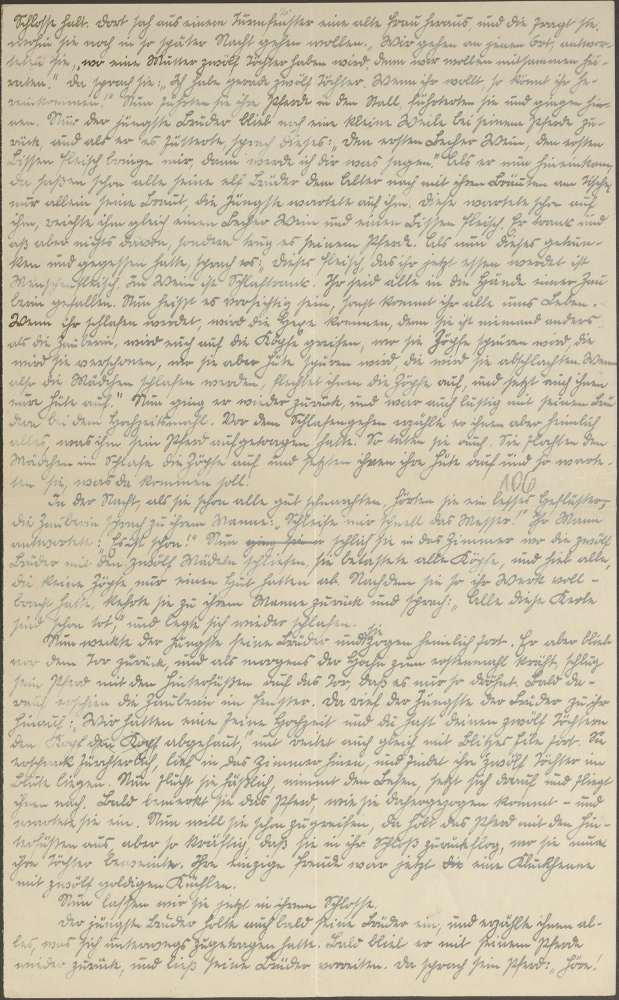 Schlosse halt. Dort sah aus einem Turmfenster eine alte Frau heraus, und die fragt sie,
wohin sie noch in so später Nacht gehen wollen. „Wir gehen an jenen Ort, antwor-
teten sie, „wo eine Mutter zwölf Töchter haben wird, denn wir wollen mitsammen hei-
raten." Da sprach sie: „Ich habe gerade zwölf Töchter. Wenn ihr wollt, so könnt ihr he-
reinkommen." Nun führten sie ihre Pferde in den Stall, fütterten sie und gingen hin-
ein. Nur der jüngste Bruder blieb noch eine kleine Weile bei seinem Pferde zu-
rück, und als er es fütterte, sprach dieses: „Den ersten Becher Wein, den ersten
Bissen Fleisch bringe mir, dann werde ich dir was sagen." Als er nun hineinkam,
da saßen schon alle seine elf Brüder dem Alter nach mit ihren Bräuten am Tische,
nur allein seine Braut, die jüngste wartete auf ihn. Diese wartete schon auf
ihn, reichte ihm gleich einen Becher Wein und einen Bissen Fleisch. Er trank und
aß aber nichts davon, sondern trug es seinem Pferde. Als nun dieses getrun-
ken und gegessen hatte, sprach es: „Dieses Fleisch, das ihr jetzt essen werdet ist
Im Wein ist Schlaftrank. Ihr seid alle in die Hände einer Zau-
berin gefallen. Nun heißt es vorsichtig sein, sonst kommt ihr alle ums Leben.
Wenn ihr schlafen werdet, wird die Hexe kommen, denn sie ist niemand anders
als die Zauberin, wird euch auf die Köpfe greifen, wo sie Zöpfe spüren wird, die
wird sie verschonen, wo sie aber Hüte spüren wird die wird sie abschlachten. Wenn
also die Mädchen schlafen werden, flechtet ihnen die Zöpfe auf, und setzt auch ihnen
eure Hüte auf." Nun ging er wieder zurück, und war auch lustig mit seinen Brü-
dern bei dem Hochzeitsmahl. Vor dem Schlafengehen erzählte er ihnen aber heimlich
alles, was ihm sein Pferd aufgetragen hatte. So taten sie auch. Sie flochten den
Mädchen im Schlafe die Zöpfe auf und setzten ihnen ihre Hüte auf und so warte-
ten sie, was da kommen soll.
106
In der Nacht, als sie schon alle gut schnarchten, hörten sie ein leises Geflüster,
die Zauberin sprach zu ihrem Manne: „Schleife mir schnell das Messer!" Ihr Mann
antwortete: schon!" Nun schlich sie in das Zimmer wo die zwölf
Brüder mit den zwölf Mädeln schliefen, sie betastete alle Köpfe, und hieb alle,
die keine Zöpfe nur einen Hut hatten ab. Nachdem sie so ihr Werk voll-
bracht hatte, kehrte sie zu ihrem Manne zurück und sprach: „Alle diese Kerle
sind schon tot," und legte sich wieder schlafen.
Nun weckte der Jüngste seine Brüder und sie zogen heimlich fort. Er aber blieb
vor dem Tor zurück, und als morgens der Hahn zum erstenmahl kräht, schlug
sein Pferd mit den Hinterfüßen auf das Tor, daß es nur so dröhnt. Bald da-
rauf erschien die Zauberin im Fenster. Da rief der Jüngste der Brüder zu ihr
hinauf: „Wir hatten eine feine Hochzeit und du hast deinen zwölf Töchtern
den Kopf abgehaut," und reitet auch gleich mit Blitzes Eile fort. Sie
erschrak fürchterlich, lief in das Zimmer hinein, und findet ihre zwölf Töchter im
Blute liegen. Nun flucht sie häßlich, nimmt den Besen, setzt sich darauf und fliegt
ihnen nach. Bald bemerkt sie das Pferd, wie sie dahergezogen kommt – und
wartete sie ein. Nun will sie schon zugreifen, da holt das Pferd mit den Hin-
terfüßen aus, aber so kräftig, daß sie in ihr Schloß zurückflog, wo sie nun
ihre Töchter beweinte. Ihre einzige Freude war jetzt die eine Kluckhenne
mit zwölf goldigen Kücheln.
Nun lassen wir sie jetzt in ihrem Schlosse.
Der jüngste Bruder holte auch bald seine Brüder ein, und erzählte ihnen al-
les, was sich unterwegs zugetragen hatte. Bald blieb er mit seinem Pferde
wieder zurück, und ließ seine Brüder vorreiten. Da sprach sein Pferd: „Höre!